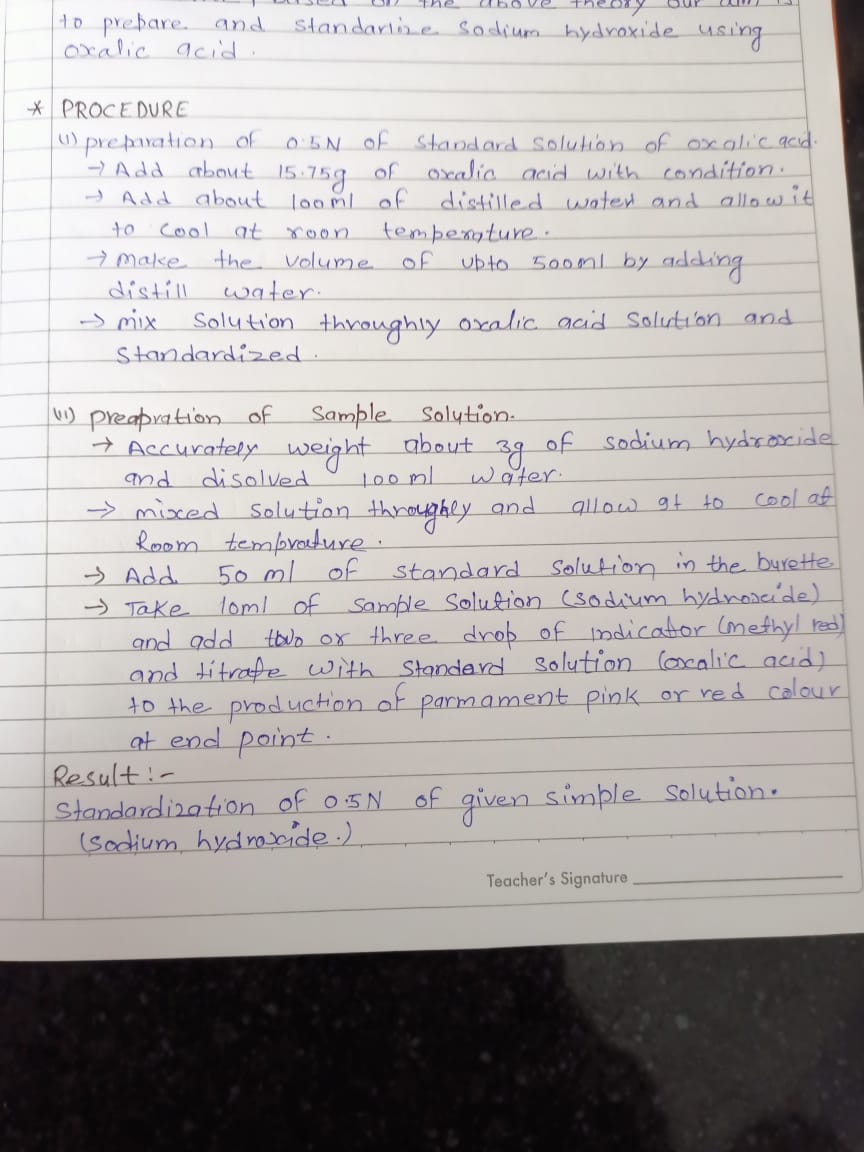 based on the above theory our aim is
to prepare and standarlize Sodium hydroxide using
oxalic acid.
* PROCEDURE
(i) preparation of 0.5N of Standard Solution of oxalic acid.
→ Add about 15.75g of oxalic acid with condition.
→ Add about 100ml of distilled water and allow it
to cool at roon temperature.
→ make the volume of upto 500ml by adding
distill water.
→ mix Solution throughly oxalic acid Solution and
Standardized.
(ii) preapration of Sample Solution.
→ Accurately weight about 3g of sodium hydroxide
and disolved 100ml water.
→ mixed Solution throughly and allow it to cool at
Room temprature.
→ Add 50 ml of standard Solution in the burette
→ Take 10ml of Sample Solution (sodium hydroxide)
and add two or three drop of indicator (methyl red)
and titrate with Standerd Solution (oxalic acid)
to the production of parmament pink or red colour
at end point.
Result :-
Standardization of 0.5N of given simple Solution.
(Sodium hydroxide.)
Teacher's Signature